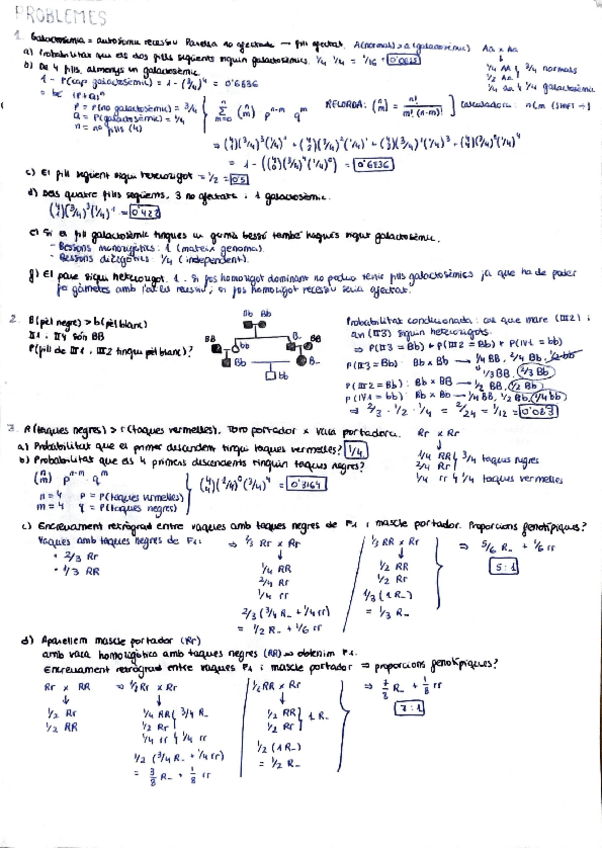 PROBLEMES
1. Galactosèmia = autosòmic recessiu Parella no afectada → fill afectat. A(normals) > a (galactosèmic) Aa x Aa
a) Probabilitat que els dos fills següents siguin galactosèmics. 1/4 · 1/4 = 1/16 = 0'0625
1/4 AA
2/4 Aa
3/4 normals
1/4 aa 1/4 galactosèmic
b) De 4 fills, almenys un galactosèmic.
1 - P(cap galactosèmic) = 1 - (3/4)^4 = 0'6836
= bé (p+q)^n
p = P(no galactosèmic) = 3/4
q = P(galactosèmic) = 1/4
n = nº fills (4)
Σ (n m) p^n-m q^m
RECORDA: (n m) = n! / m!·(n-m)! calculadora: nCm (SHIFT ÷)
= 1 - ((4 0)(3/4)^4 (1/4)^0) = 0'6836
c) El fill següent sigui heterozigot = 1/2 = 0'5
d) Dels quatre fills següents, 3 no afectats i 1 galactosèmic.
(4 1)(3/4)^3(1/4)^1 = 0'422
e) Si el fill galactosèmic tingués un germà bessó també hagués sigut galactosèmic.
- Bessons monozigòtics: 1 (mateix genoma).
- Bessons dizigòtics: 1/4 (independent).
f) El pare sigui heterozigot. 1. Si fos homozigot dominant no podria tenir fills galactosèmics ja que ha de poder
fer gàmetes amb l'al·lel recessiu; si fos homozigot recessiu seria afectat.
2. B(pèl negre) > b(pèl blanc)
II1 i II4 són BB
P(fill de III1 i III2 tingui pèl blanc)?
Bb Bb
BB
BB
Bb
B_
bb
Probabilitat condicionada: cal que mare (III2) i
avi (II3) siguin heterozigots.
⇒ P(II3 = Bb) · P(III2 = Bb) · P(IV1 = bb)
P(II3 = Bb) Bb x Bb → 1/4 BB, 2/4 Bb, 1/4 bb
1/3 BB, 2/3 Bb
P(III2 = Bb): Bb x BB → 1/2 BB, 1/2 Bb
P(IV1 = bb): Bb x Bb → 1/4 BB, 1/2 Bb, 1/4 bb
⇒ 2/3 · 1/2 · 1/4 = 2/24 = 1/12 = 0'083
3. R (taques negres) > r (taques vermelles). Toro portador x vaca portadora. Rr x Rr
a) Probabilitat que el primer descendent tingui taques vermelles? 1/4
1/4 RR
2/4 Rr
3/4 taques negres
1/4 rr 1/4 taques vermelles
b) Probabilitat que els 4 primers descendents tinguin taques negres?
(n m) p^n-m · q^m
n = 4 p = P(taques vermelles)
m = 4 q = P(taques negres)
(4 4)(1/4)^0(3/4)^4 = 0'3164
c) Encreuament retrògrad entre vaques amb taques negres de F1 i mascle portador. Proporcions genotípiques?
Vaques amb taques negres de F1:
· 2/3 Rr
· 1/3 RR
⇒ 2/3 Rr x Rr
1/4 RR
2/4 Rr
1/4 rr
2/3 (3/4 R_ + 1/4 rr)
= 1/2 R_ + 1/6 rr
1/3 RR x Rr
1/2 RR
1/2 Rr
1/3 (1 R_)
= 1/3 R_
⇒ 5/6 R_ + 1/6 rr
5:1
d) Aparellem mascle portador (Rr)
amb vaca homozigòtica amb taques negres (RR) → obtenim F1.
Encreuament retrògrad entre vaques F1 i mascle portador ⇒ proporcions genotípiques?
Rr x RR
1/2 Rr
1/2 RR
⇒ 1/2 Rr x Rr
1/4 RR
2/4 Rr
3/4 R_
1/4 rr 1/4 rr
1/2 (3/4 R_ + 1/4 rr)
= 3/8 R_ + 1/8 rr
1/2 RR x Rr
1/2 RR
1/2 Rr
1 R_
1/2 (1 R_)
= 1/2 R_
⇒ 7/8 R_ + 1/8 rr
7:1